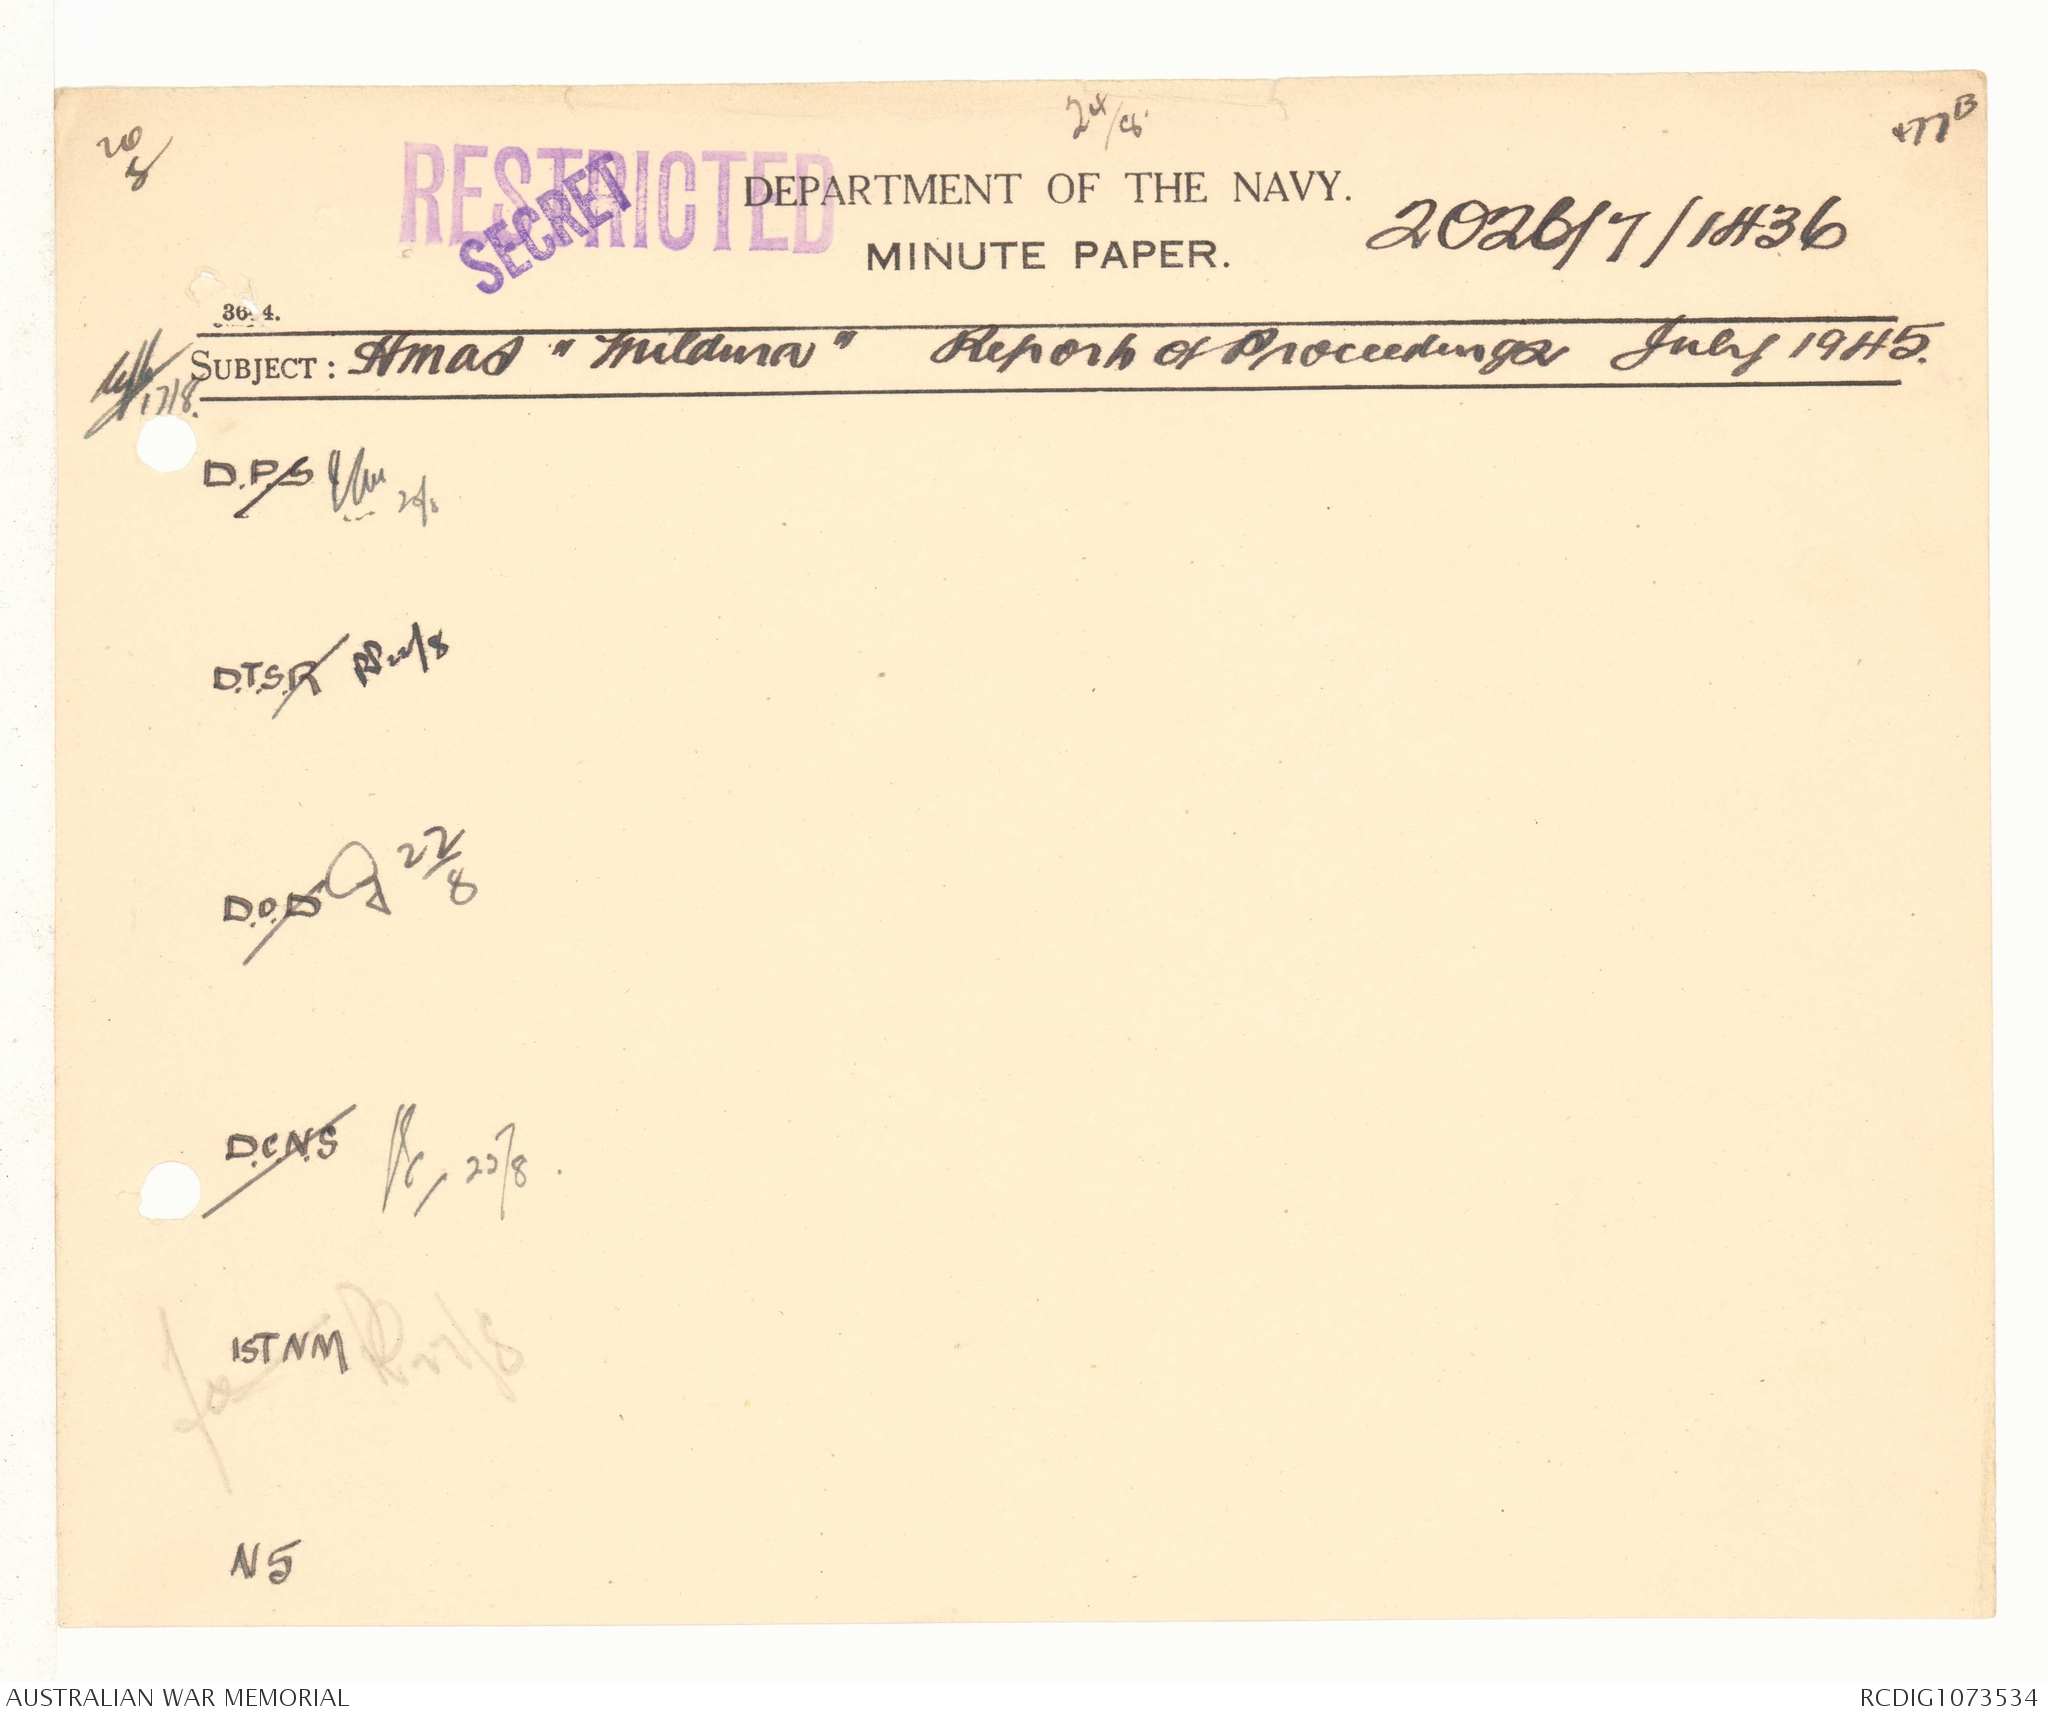 20/8
24/8
477B
RESTRICTED
SECRET
DEPARTMENT OF THE NAVY.
2026/7/1436
MINUTE PAPER.
SUBJECT: HMAS "Mildura" Report of Proceedings July 1945.
17/8.
D.P.S
D.T.S.R 22/8
D.O.D 22/8
D.C.N.S 22/8.
1ST NM
N5
AUSTRALIAN WAR MEMORIAL
RCDIG1073534